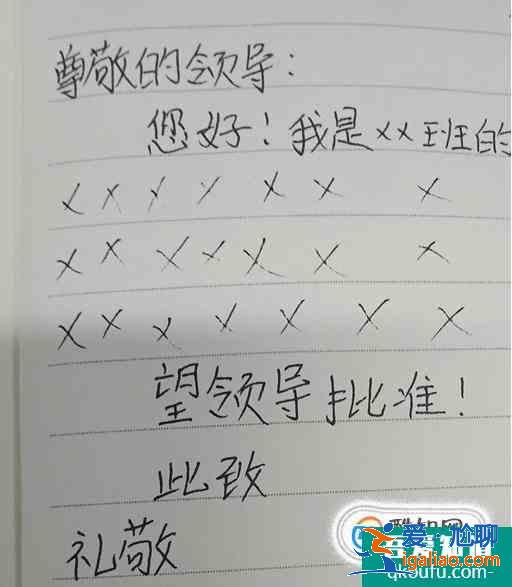 尊敬的领导：
您好！我是xx班的
x x x x x x x
x x x x x x x
x x x x x x x
望领导批准！
此致
礼敬
爱尴聊
igaliao.com
qk5ufu.com